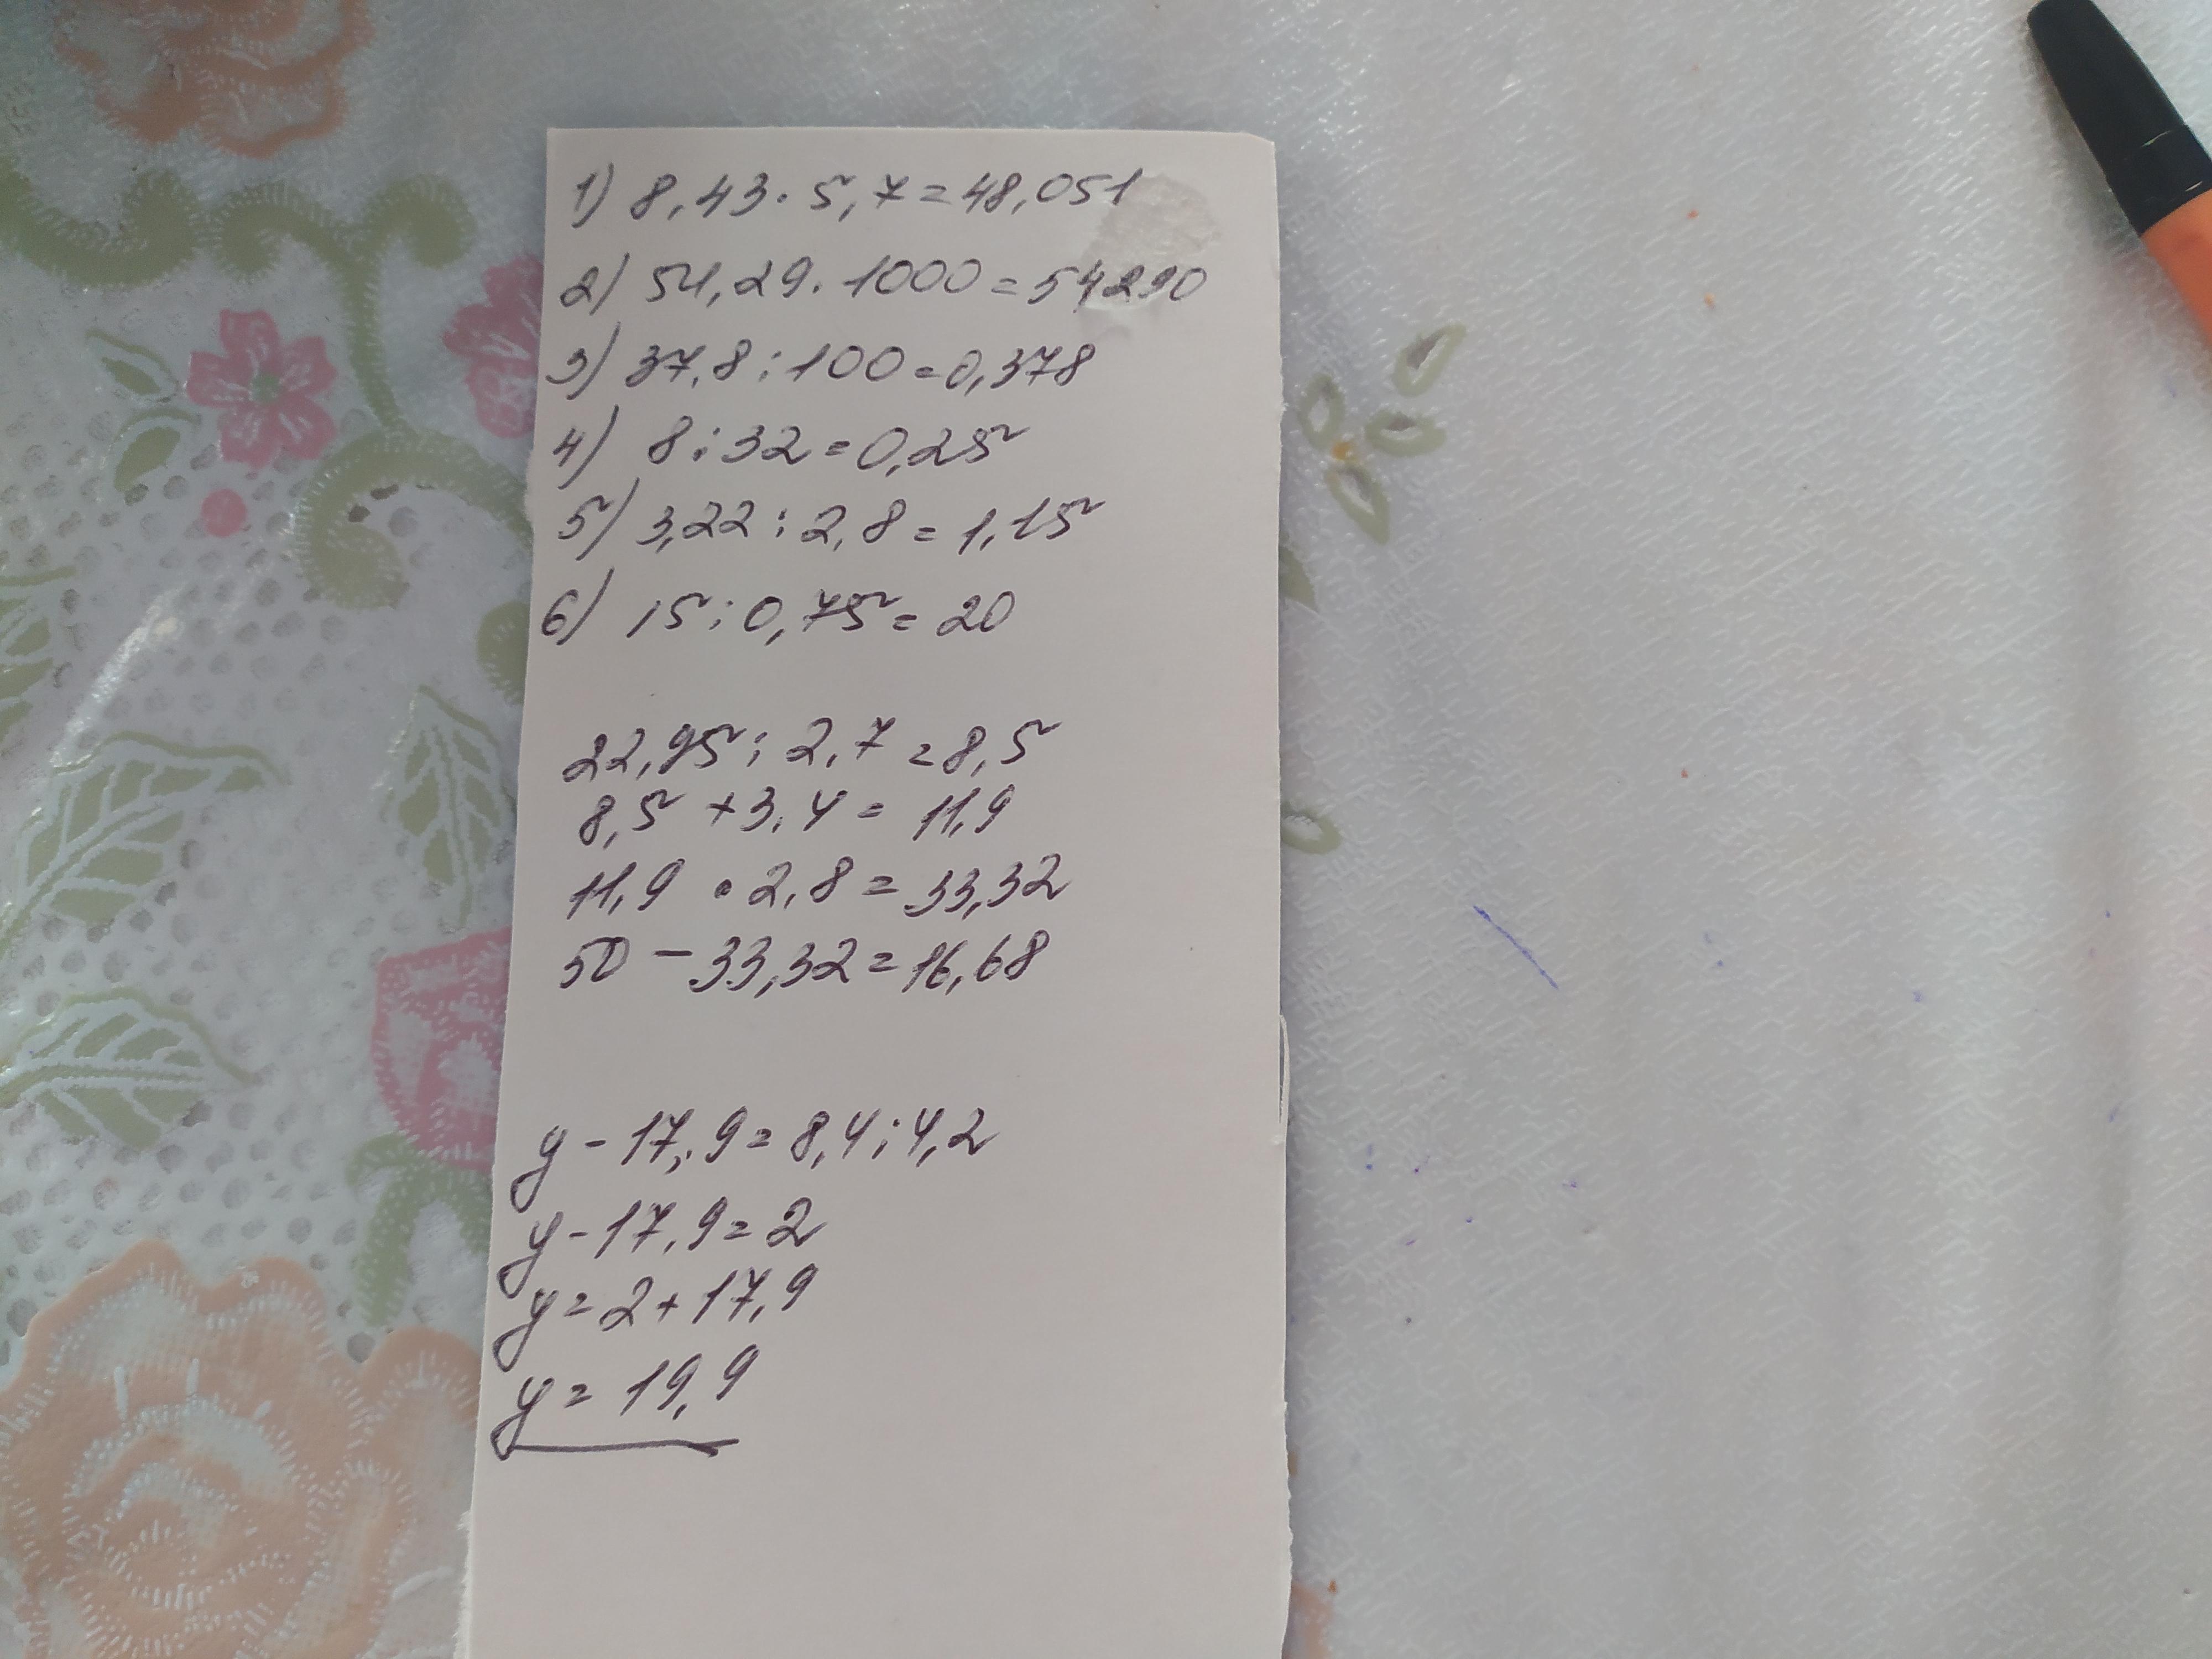 1) 8,43 · 5,7 = 48,051
2) 54,29 · 1000 = 54290
3) 37,8 : 100 = 0,378
4) 8 : 32 = 0,25
5) 3,22 : 2,8 = 1,15
6) 15 : 0,75 = 20
22,95 : 2,7 = 8,5
8,5 + 3,4 = 11,9
11,9 · 2,8 = 33,32
50 - 33,32 = 16,68
y - 17,9 = 8,4 : 4,2
y - 17,9 = 2
y = 2 + 17,9
y = 19,9